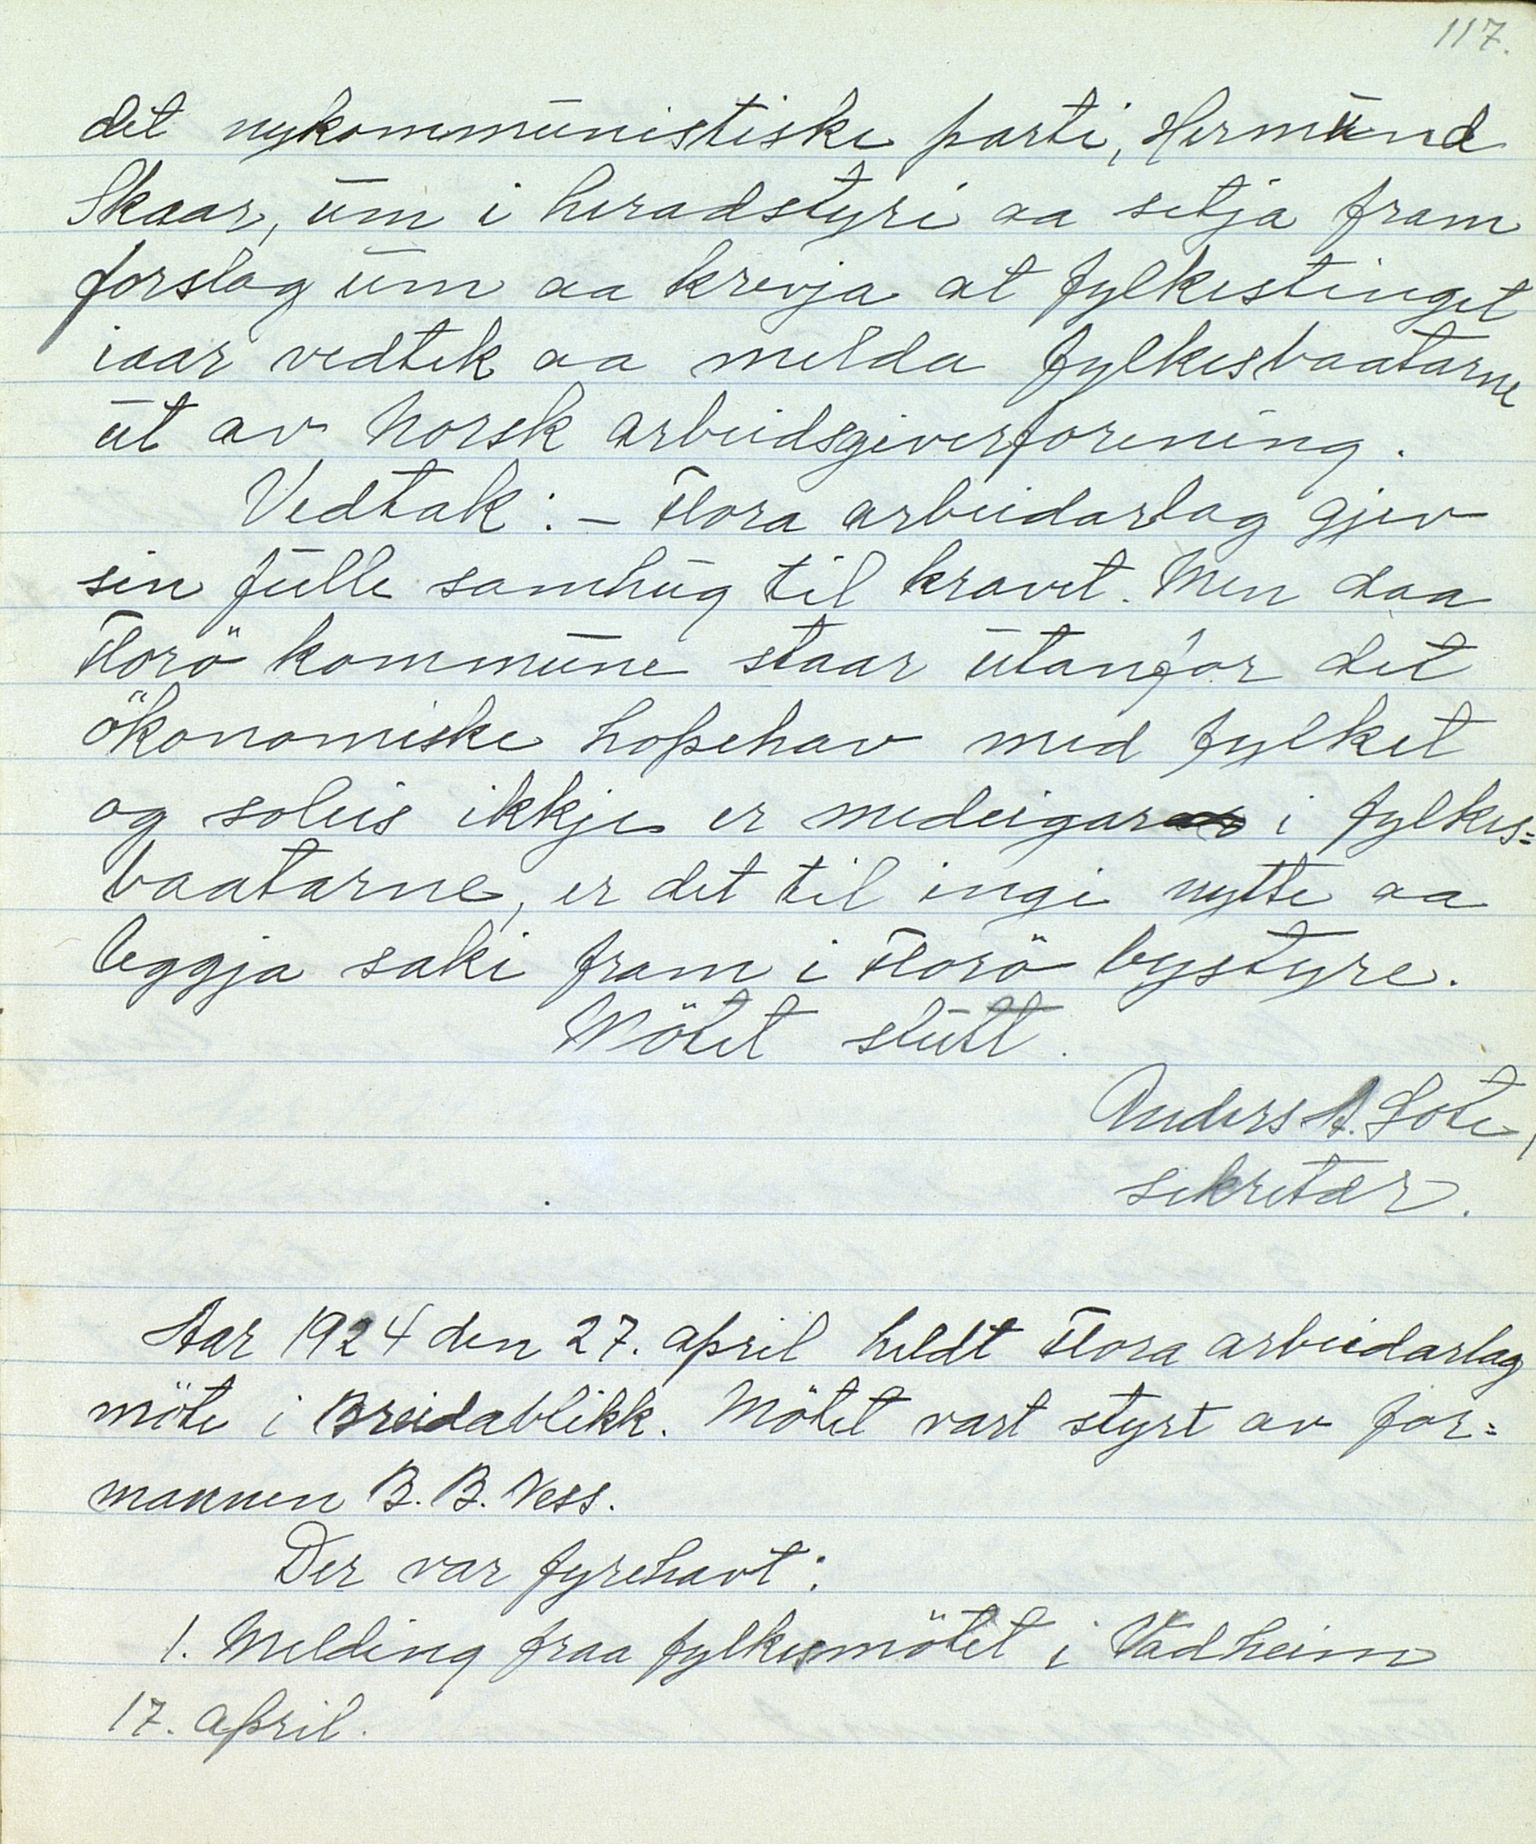 117.
det nykommunistiske parti, Hermund
Skaar, um i heradstyri aa setja fram
forslag um aa krevja at fylkestinget
iaar vedtek aa melda fylkesbaatarne
ut av Norsk arbeidsgiverforening.
Vedtak: – Flora arbeidarlag gjev
sin fulle samhug til kravet. Men daa
Florö kommune staar utanfor det
ökonomiske hopehav med fylket
og soleis ikkje er medeigar i fylkes=
baatarne, er det til ingi nytte aa
leggja saki fram i Florö bystyre.
Mötet slutt.
Anders A. Sote,
sekretær.
Aar 1924 den 27. april heldt Flora arbeidarlag
möte i Breidablikk. Mötet vart styrt av for=
mannen B. B. Ness.
Der var fyrehavt:
1. Melding fraa fylkesmötet i Vadheim
17. april.